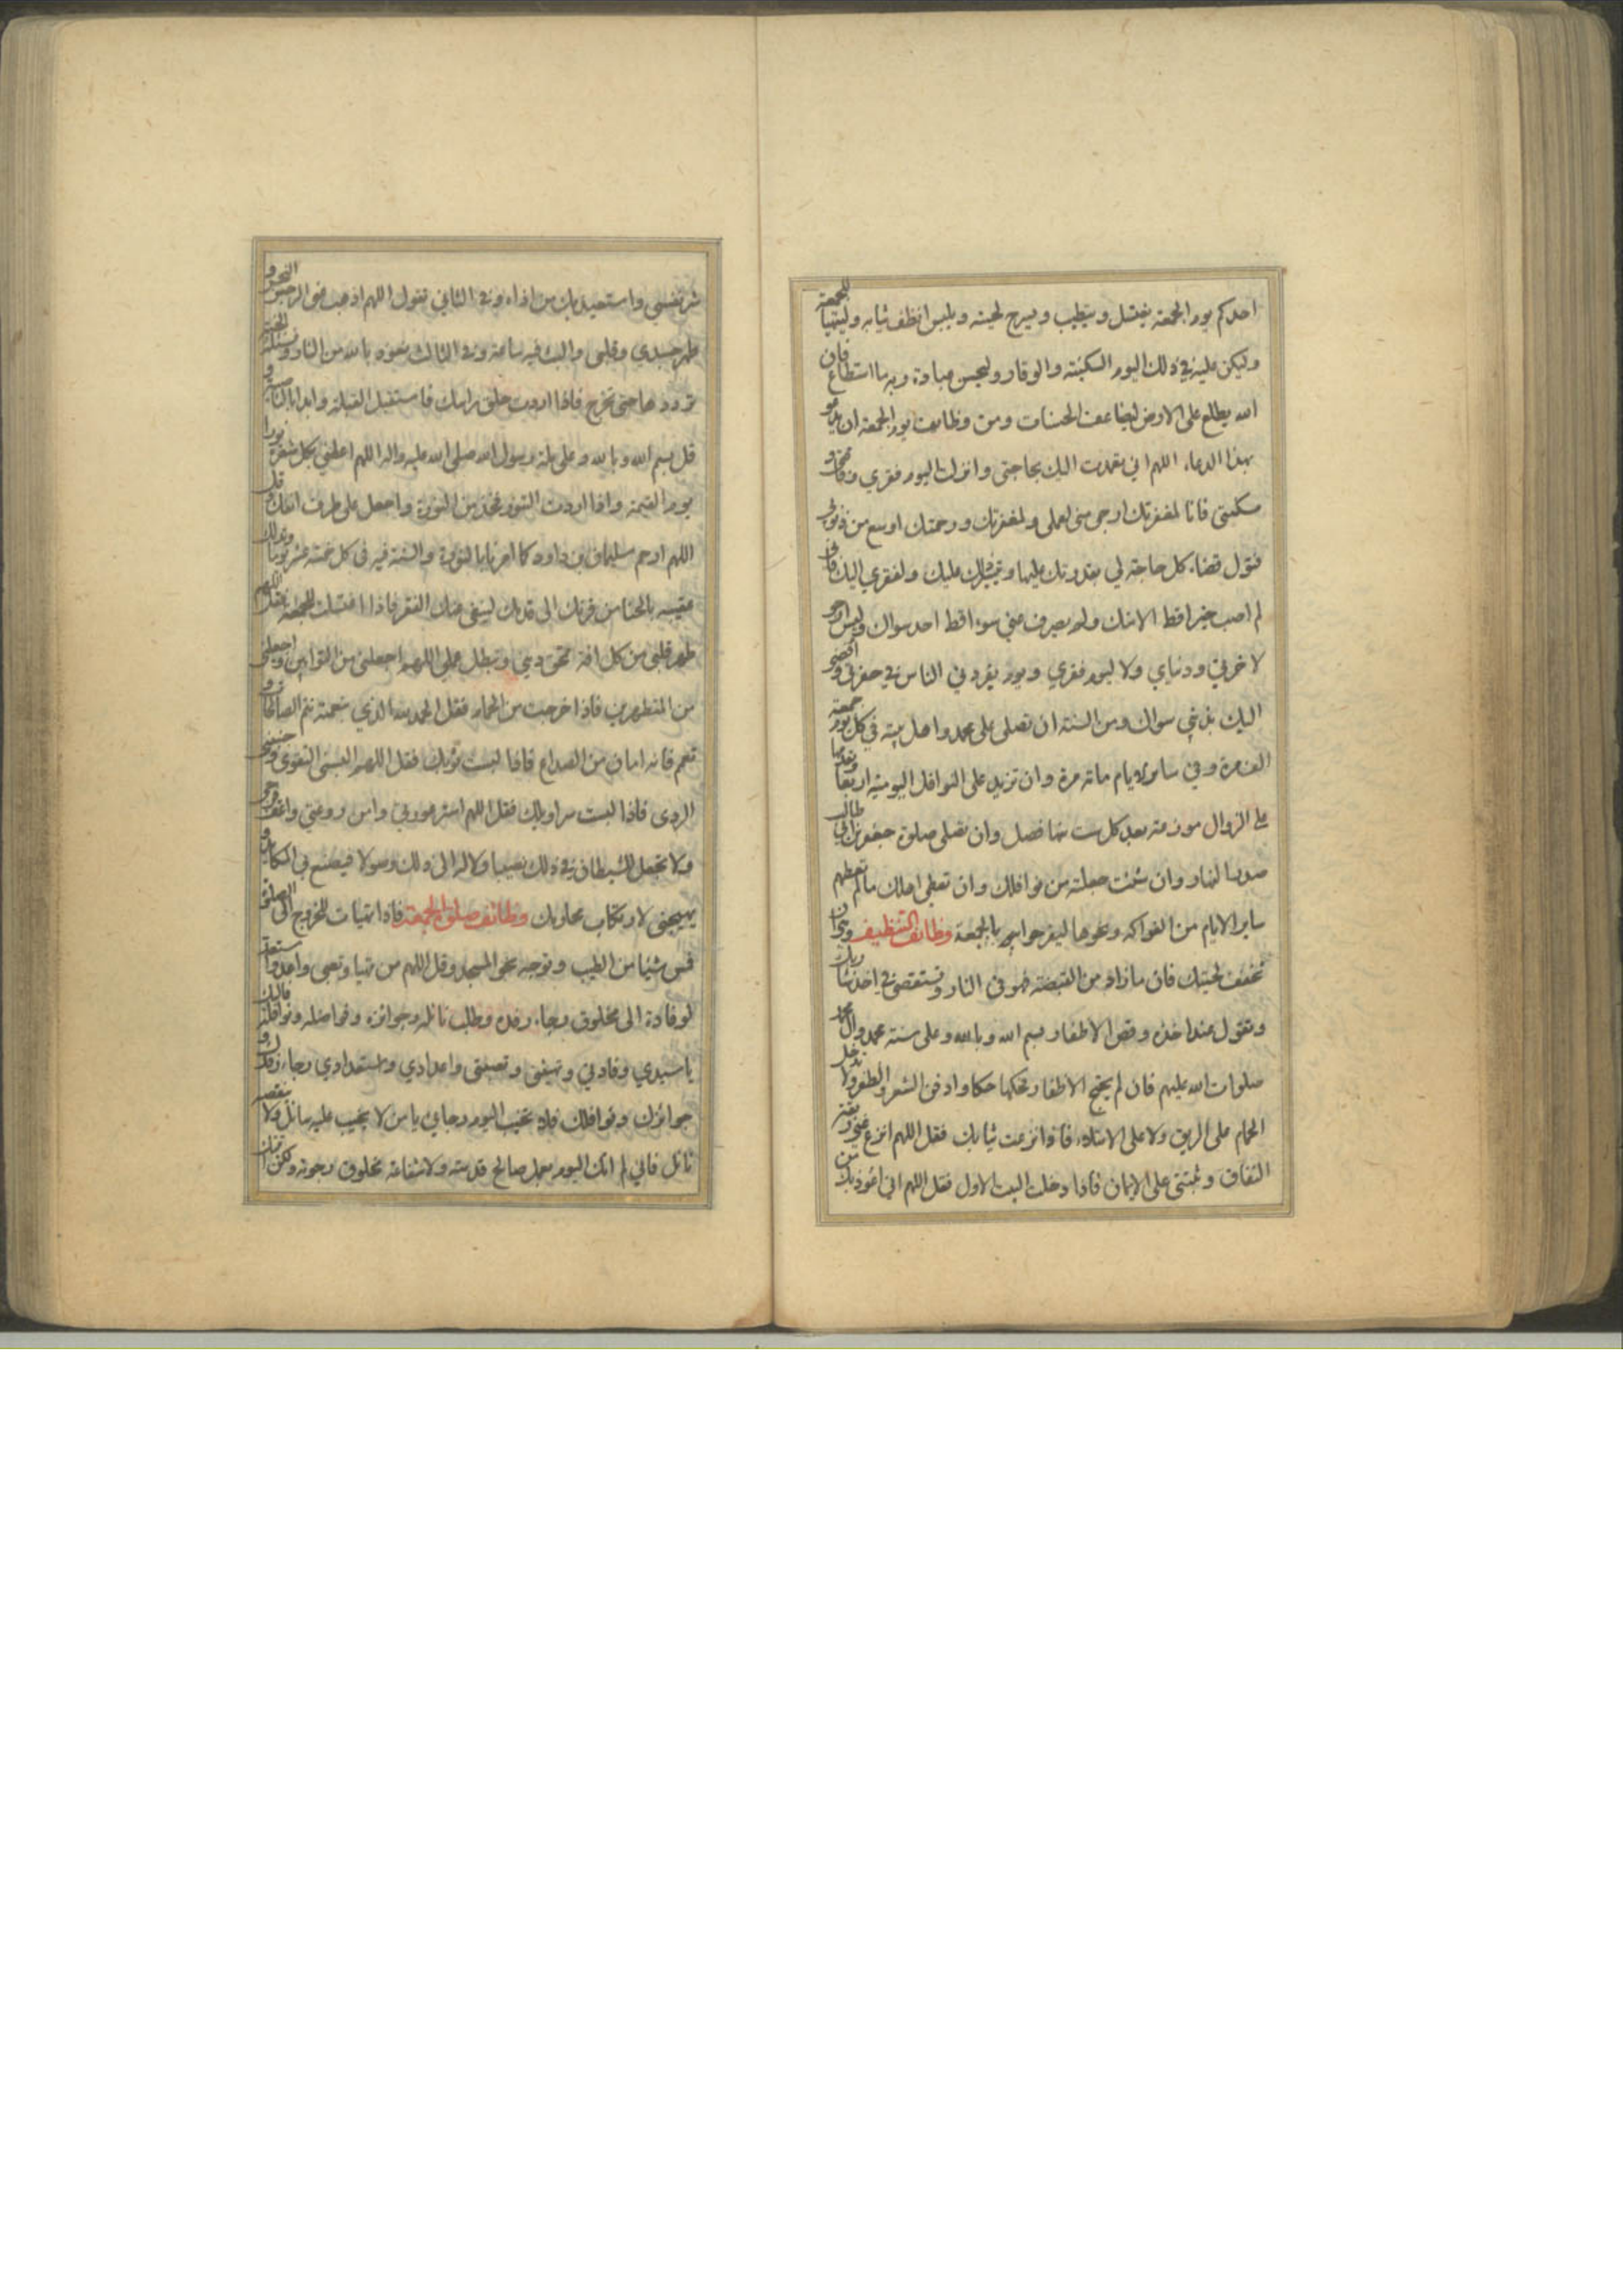 احدكم يوم الجمعة يغتسل ويتطيب ويسرح لحيته ويلبس انظف ثيابه وليتهيا للجمعة
وليكن عليه في ذلك اليوم السكينة والوقار وليحسن عبادة ربه ما استطاع فان
الله يطلع على الارض ليضاعف الحسنات ومن وظايف يوم الجمعة ان يدعو
بهذا الدعاء اللهم اني تعمدت اليك بحاجتي وانزلت اليوم فقري وفاقتي و
مسكنتي فانا لمغفرتك ارجى مني لعملي ولمغفرتك ورحمتك اوسع من ذنوبي
فتول قضاء كل حاجة لي بقدرتك عليها وتيسر ذلك عليك ولفقري اليك فاني
لم اصب خيرا قط الا منك ولم يصرف عني سوءا قط احد سواك وليس ارجو
لاخرتي ودنياي ولا ليوم فقري ويوم يفردني الناس في حفرتي وافضي
اليك بذنبي سواك ومن السنة ان تصلى على محمد واهل بيته في كل يوم جمعة
الف مرة وفي ساير الايام مائة مرة وان تزيد على النوافل اليومية اربعا وتقدمها
على الزوال موزعة بعد كل ست منها فصل وان تصلى صلوة جعفر بن ابي طالب
صدر النهار وان شئت جعلته من نوافلك وان تعطى اهلك ما لم تعطهم
ساير الايام من الفواكه ونحوها ليفرحوا بهم بالجمعة وظائف التنظيف وينبغي ان
تخفف لحيتك فان ما زاد من القبضة فهو في النار وتستقصى في اخذ شاربك
وتقول عند اخذه وقص الاظفار بسم الله وبالله وعلى سنة محمد وآل محمد
صلوات الله عليهم فان لم يحتج الاظفار تحكها حكا وادفن الشعر والظفر ولا تدخل
الحمام على الريق ولا على الامتلاء فاذا نزعت ثيابك فقل اللهم انزع عني ربقة
النفاق وثبتني على الايمان فاذا دخلت البيت الاول فقل اللهم اني اعوذ بك من
شر نفسي واستعيذ بك من اذاه وفي الثاني تقول اللهم اذهب عني الرجس النجس و
طهر جسدي وقلبي والبث فيه ساعة وفي الثالث نعوذ بالله من النار ونسئله الجنة
ترددها حتى تخرج فاذا اردت حلق راسك فاستقبل القبلة وابدا بالناصية و
قل بسم الله وبالله وعلى ملة رسول الله صلى الله عليه واله اللهم اعطني بكل شعرة نورا
يوم القيمة واذا اردت التنور فخذ من النورة واجعل على طرف انفك وقل
اللهم ارحم سليمان بن داود كما امرنا بالنورة والسنة فيه في كل خمسة عشر يوما وتدلك
عقيبه بالحنا من قرنك الى قدمك لينفي عنك الفقر فاذا اغتسلت للجمعة فقل اللهم
طهر قلبي من كل افة تمحق ديني وتبطل عملي اللهم اجعلني من التوابين واجعلني
من المتطهرين فاذا خرجت من الحمام فقل الحمد لله الذي بنعمته تتم الصالحات و
تعمم فانه امان من الصداع فاذا لبست ثوبك فقل اللهم البسني التقوى وجنبني
الردى فاذا لبست سراويلك فقل اللهم استر عورتي وامن روعتي واعف فرجي
ولا تجعل للشيطان في ذلك نصيبا ولا له الى ذلك وصولا فيصنع بي المكايد و
يهيجني لارتكاب محارمك وظائف صلوة الجمعة فاذا تهيات للخروج الى الصلوة
فمس شيئا من الطيب وتوجه نحو المسجد وقل اللهم من تهيا وتعبى واعد واستعد
لوفادة الى مخلوق رجاء رفده وطلب نائله وجوائزه وفواضله ونوافله فاليك
يا سيدي وفادتي وتهيئتي وتعبئتي واعدادي واستعدادي رجاء رفدك و
جوائزك ونوافلك فلا تخيب اليوم رجاي يا من لا يخيب عليه سائل ولا ينقصه
نائل فاني لم اتك اليوم بعمل صالح قدمته ولا شفاعة مخلوق رجوته ولكن اتيتك